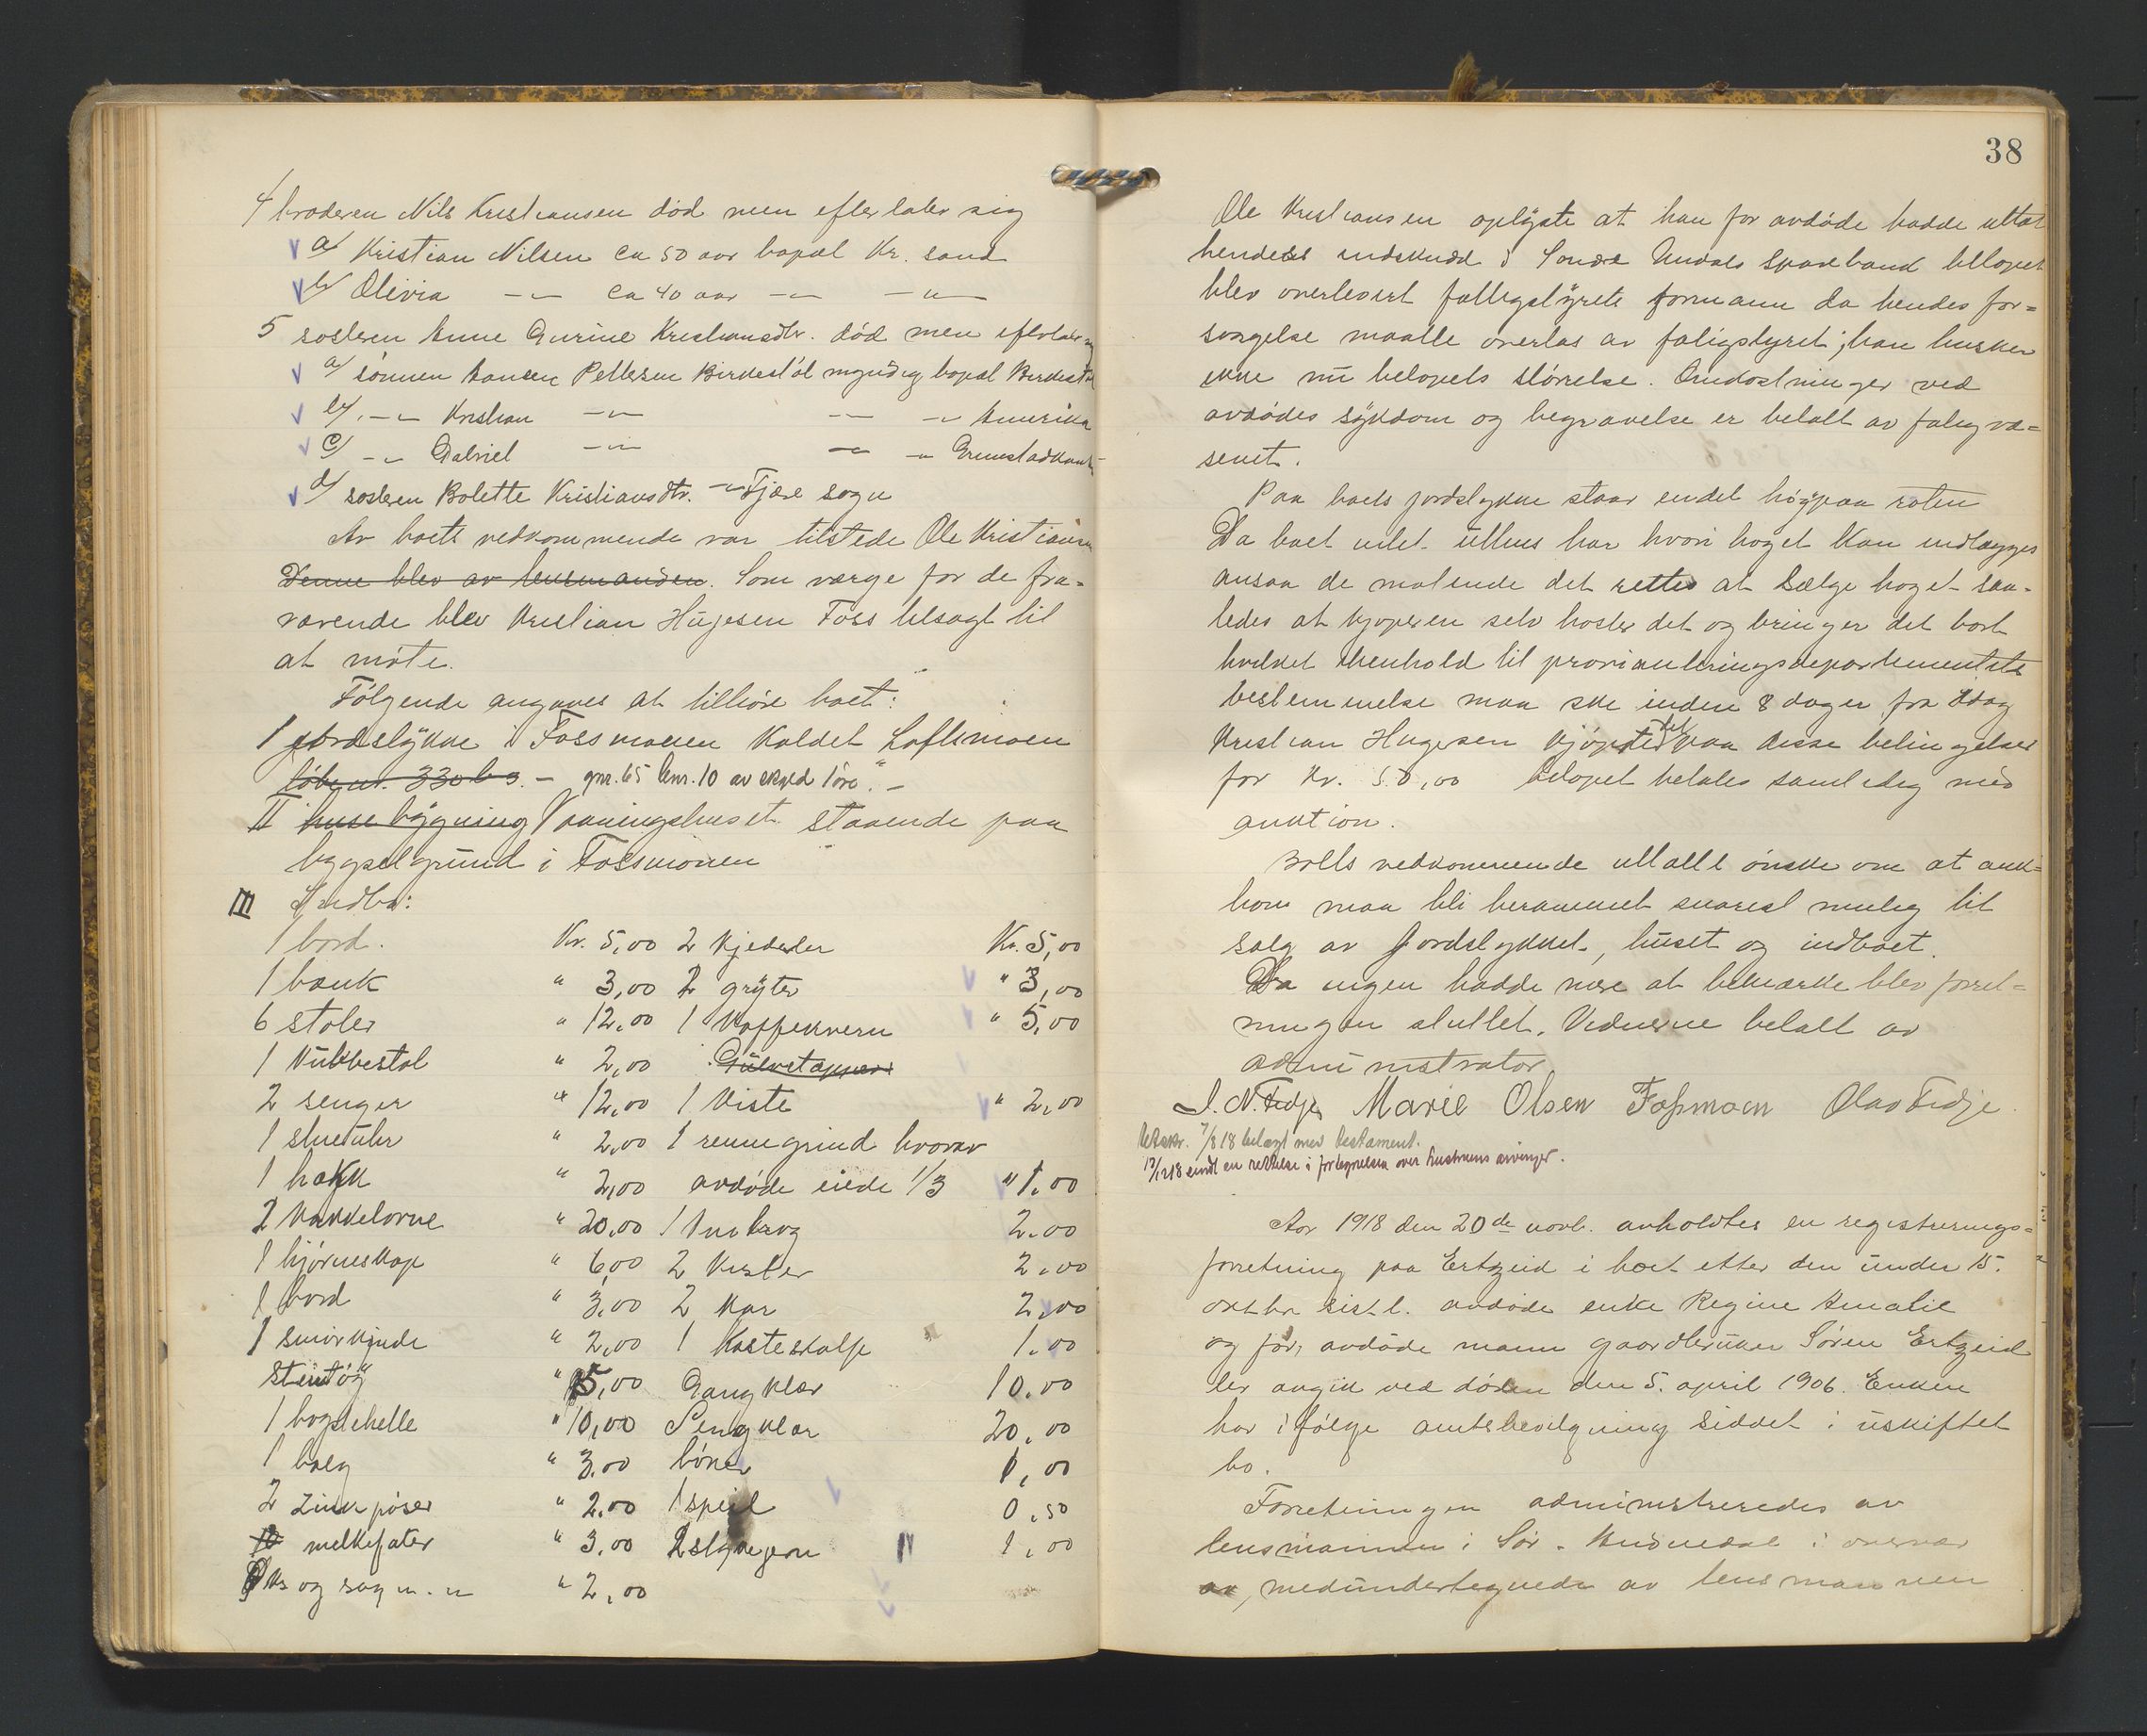 4 broderen Nils Kristiansen död men efterlater sig
a/ Kristian Nilsen ca 50 aar bopæl Kr. sand
b/ Olivia -"- ca 40 aar -"- -"-
5 søsteren Anne Gurine Kristiansdtr. död men efterlater sig
a/ sönnen Hansen Pettersen Birkestöl myndig bopæl Birkestöl
b/ -"- Kristian -"- -"- -"- Amerika
c/ -"- Gabriel -"- -"- -"- Grimstadkant
d/ søsteren Bolette Kristiansdtr. -"- Fjære sogn
Av boets vedkommende var tilstede Ole Kristiansen
Denne blev av lensmanden. Som værge for de fra=
værende blev Kristian Hugesen Foss tilsagt til
at möte.
Fölgende angaves at tilhöre boet:
1 jordstykke i Fossmoen kaldet Loftsmoen
löbenr. 330 b 3. - gnr. 65 bnr. 10 av skyld 1 öre. -
II husebygning Vaaningshuset staaende paa
bygselgrund i Fossmoen
III Indbo:
1 bord. Kr. 5,00 2 kjedeler Kr. 5,00
1 bænk " 3,00 2 gryter " 3,00
6 stoler " 12,00 1 kaffekvern " 5,00
1 kubbestol " 2,00 Gulvtæpper
2 senger " 12,00 1 kiste " 2,00
1 stueuhr " 2,00 1 rennegrind hvorav
1 hakk " 2,00 avdöde eiede 1/3 " 1,00
2 kakkelovne " 20,00 1 2,00
1 hjörneskap " 6,00 2 kister 2,00
1 bord " 3,00 2 kar 2,00
1 smörkjinde " 2,00 1 1,00
Stentöy " 5,00 Gangklær 10,00
1 bogsehelle " 10,00 Sengklær 20,00
1 balg " 3,00 böker 1,00
2 zinkpöser " 2,00 1 speil 0,50
10 melkefater " 3,00 2 strykejern 1,00
Öks og sag m. m " 2,00
38
Ole Kristiansen oplyste at han for avdöde hadde uttat
hendes indskudd i Søndre Undals Sparebank belöpet
blev overlevert fattigstyrets formann da hendes for=
sørgelse maatte overtas av fatigstyret; han husker
ikke nu belöpets störrelse. Omkostninger ved
avdödes sykdom og begravelse er betalt av fatigvæ=
senet.
Paa boets jordstykke staar endel höy paa roten
Da boet intet uthus har hvori höyet kan indlægges
ansaa de mötende det rettest at sælge höyet saa-
ledes at kjöperen selv höster det og bringer det bort
hvilket i henhold til provianteringsdepartementets
bestemmelse maa ske inden 8 dager fra idag
Kristian Hugesen kjöpte det paa disse betingelser
for Kr. 50,00 belöpet betales samtidig med
auktion.
Boets vedkommende uttalte önske om at auk=
tion maa bli berammet snarest mulig til
salg av Jordstykket, huset og indboet.
Da ingen hadde mere at bemærke blev forret=
ningen sluttet. Vidnerne betalt av
administrator
J. N. Fedje Marie Olsen Fossmoen Olav Fedje.
Utskr. 7/8 18 belagt med testament.
12/12 18 sendt en rettelse i fortegnelsen over hustruens arvinger.
Aar 1918 den 20de novb. avholdtes en registrerings=
forretning paa Ertzeid i boet etter den under 15.
oktbr sistl. avdöde enke Regine Amalie
og för avdöde mann gaardbruker Sören Ertzeid
der avgik ved döden den 5. april 1906. Enken
har ifölge amtsbevilgning siddet i uskiftet
bo.
Forretningen administreredes av
lensmannen i Sör-Audnedal i overvær
av, medundertegnede av lensmannen